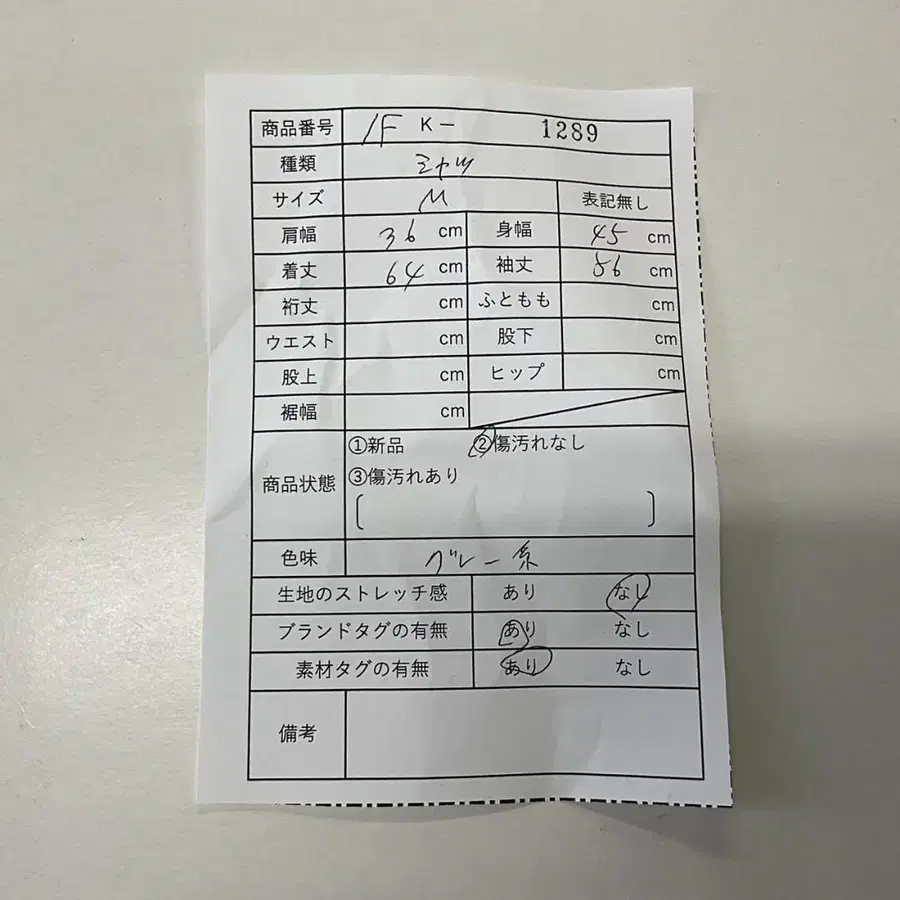 商品番号 1F K- 1289
種類 シャツ
サイズ M 表記無し
肩幅 36 cm 身幅 45 cm
着丈 64 cm 袖丈 56 cm
裄丈 cm ふともも cm
ウエスト cm 股下 cm
股上 cm ヒップ cm
裾幅 cm
商品状態 ①新品 ②傷汚れなし
③傷汚れあり
[ ]
色味 グレー系
生地のストレッチ感 あり なし
ブランドタグの有無 あり なし
素材タグの有無 あり なし
備考